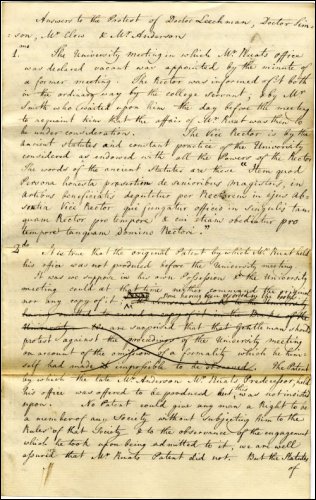 Answers to the Protest of Doctor Leechman, Doctor Sim-
son, Mr Clow & Mr Anderson
1mo
1. The University meeting in which Mr Ruats office
was declared vacant was appointed by the minute of
a former meeting. The Rector was informed of it both
in the ordinary way by the college servant, & by Mr
Smith who waited upon him the day before the meeting
to acquaint him that the affair of Mr Ruat was then to
be under consideration. The Vice Rector is by the
ancient statutes and constant practice of the University
considered as endowed with all the Powers of the Rector
The words of the ancient Statutes are these "Item quod
Persona honesta
in
actibus beneficiatis deputetur per Rectorem in ejus Ab-
sentia Vice Rector qui fungatur officio in singulis tan-
quam Rector pro tempore & cui etiam obediatur pro
tempore tanquam Domino Rectori."
2do
It is true that the original Patent by which Mr Ruat held
his office was not produced before the University meeting.
It was we suppose in his own Possession & the University
meeting could at that time neither command the original
nor any copy of it
University We are surprised that that Gentleman should
protest against the proceedings of the University meeting
on account of the omission of a formality which he him-
self had made impossible to be observed. The Patent
by which the late Mr Anderson Mr Ruats Predecessor, held
his office was offered to be produced but this was not insisted
upon. No Patent could give any man a Right to be
a member of any Society without subjecting him to the
Rules of that Society & to the observance of the engagements
which he took upon being admitted to it, we are well
assured that Mr Ruats Patent did not. But the Statutes
of